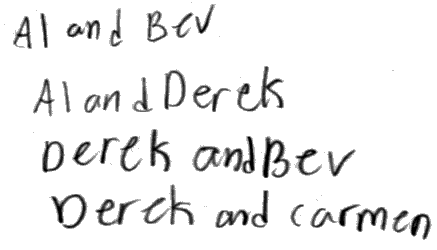 Al and Bev
Al and Derek
Derek and Bev
Derek and carmen